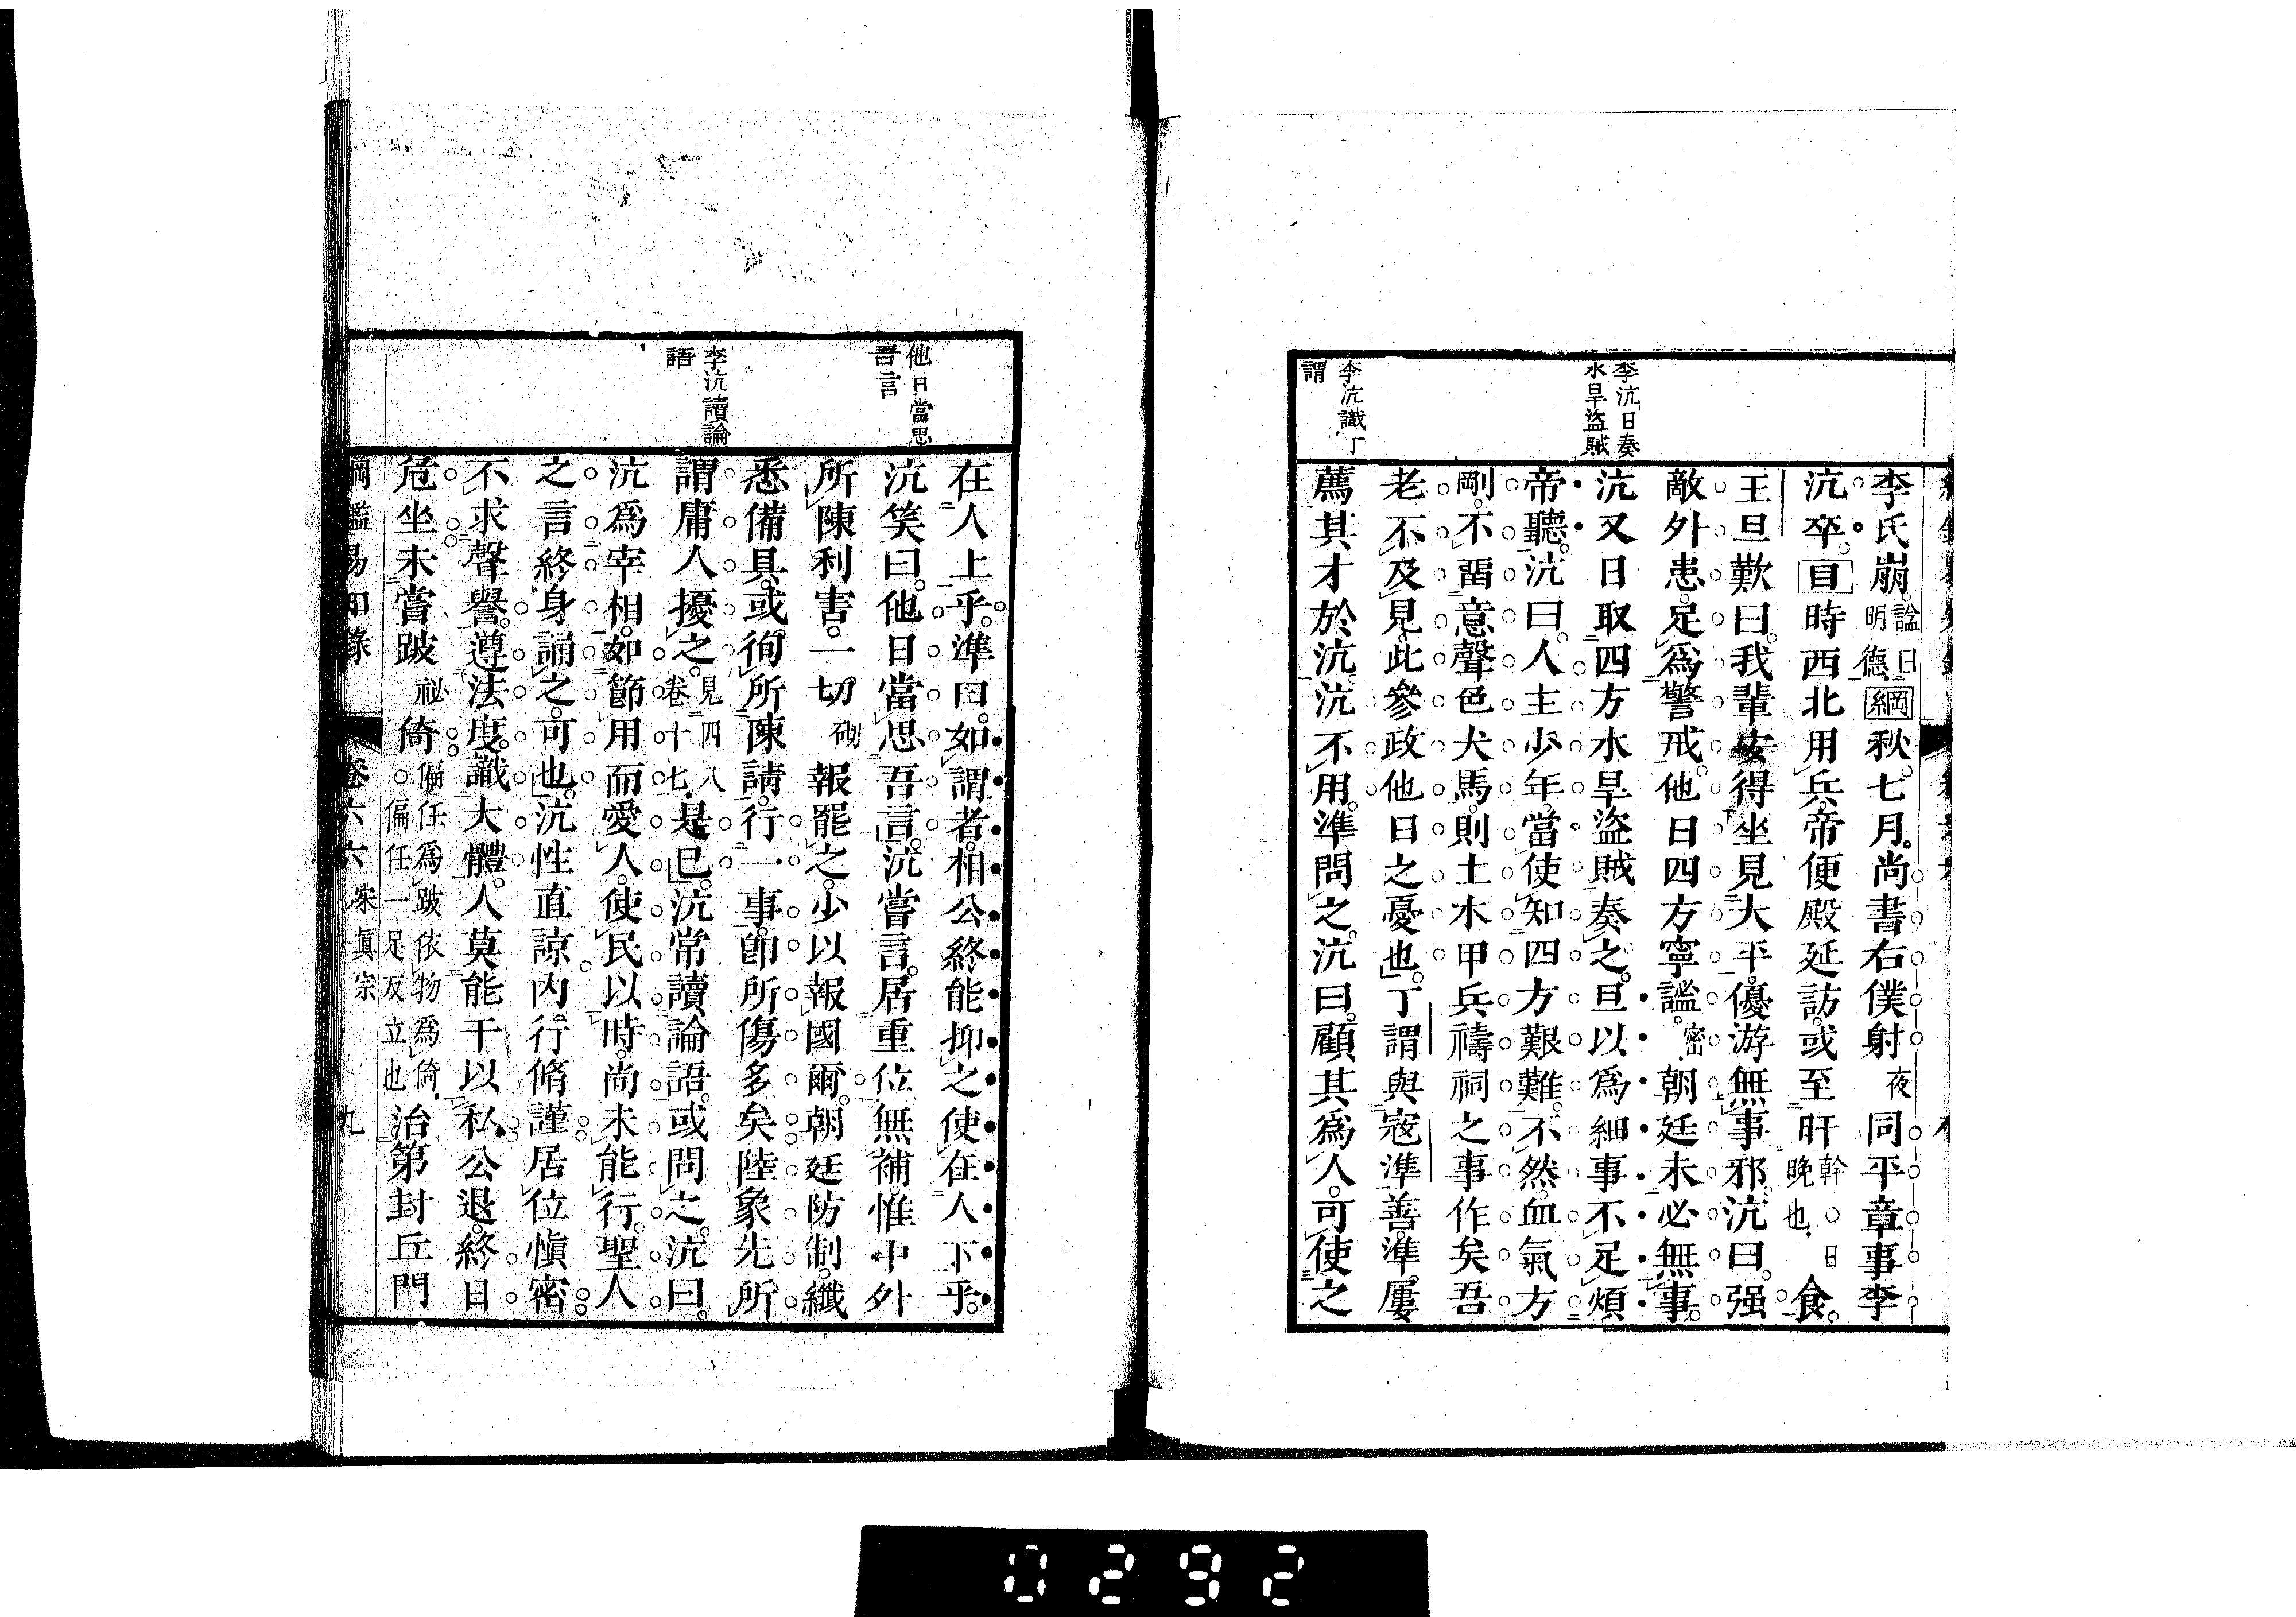 李沆日奏
水旱盜賊
李沆識丁
謂
李氏崩。諡曰明德。綱秋七月。尚書右僕射夜同平章事李
沆卒。目時西北用兵。帝便殿延訪。或至旰幹○日晚也。食。
王旦歎曰。我輩安得坐見大平。優游無事邪。沆曰。强
敵外患。足爲警戒。他日四方寧謐。密朝廷未必無事。
沆又日取四方水旱盜賊奏之。旦以爲細事不足煩
帝聽。沆曰。人主少年。當使知四方艱難。不然。血氣方
剛。不畱意聲色犬馬。則土木甲兵禱祠之事作矣。吾
老不及見。此參政他日之憂也。丁謂與寇準善。準屢
薦其才於沆。沆不用。準問之。沆曰。顧其爲人。可使之
他日當思
吾言
李沆讀論
語
在人上乎。準曰。如謂者。相公終能抑之使在人下乎。
沆笑曰。他日當思吾言。沆嘗言。居重位無補。惟中外
所陳利害。一切砌報罷之。少以報國爾。朝廷防制。纖
悉備具。或徇所陳請。行一事。卽所傷多矣。陸象先所
謂庸人擾之。見四八卷十七是已。沆常讀論語。或問之。沆曰。
沆爲宰相。如節用而愛人。使民以時。尚未能行。聖人
之言終身誦之可也。沆性直諒。內行脩謹。居位愼密。
不求聲譽。遵法度。識大體。人莫能干以私。公退。終日
危坐。未嘗跛祕倚。○偏任爲跛依物爲倚。偏任一足反立也治第封丘門
綱鑑易知錄 卷六六 宋眞宗 九
0292